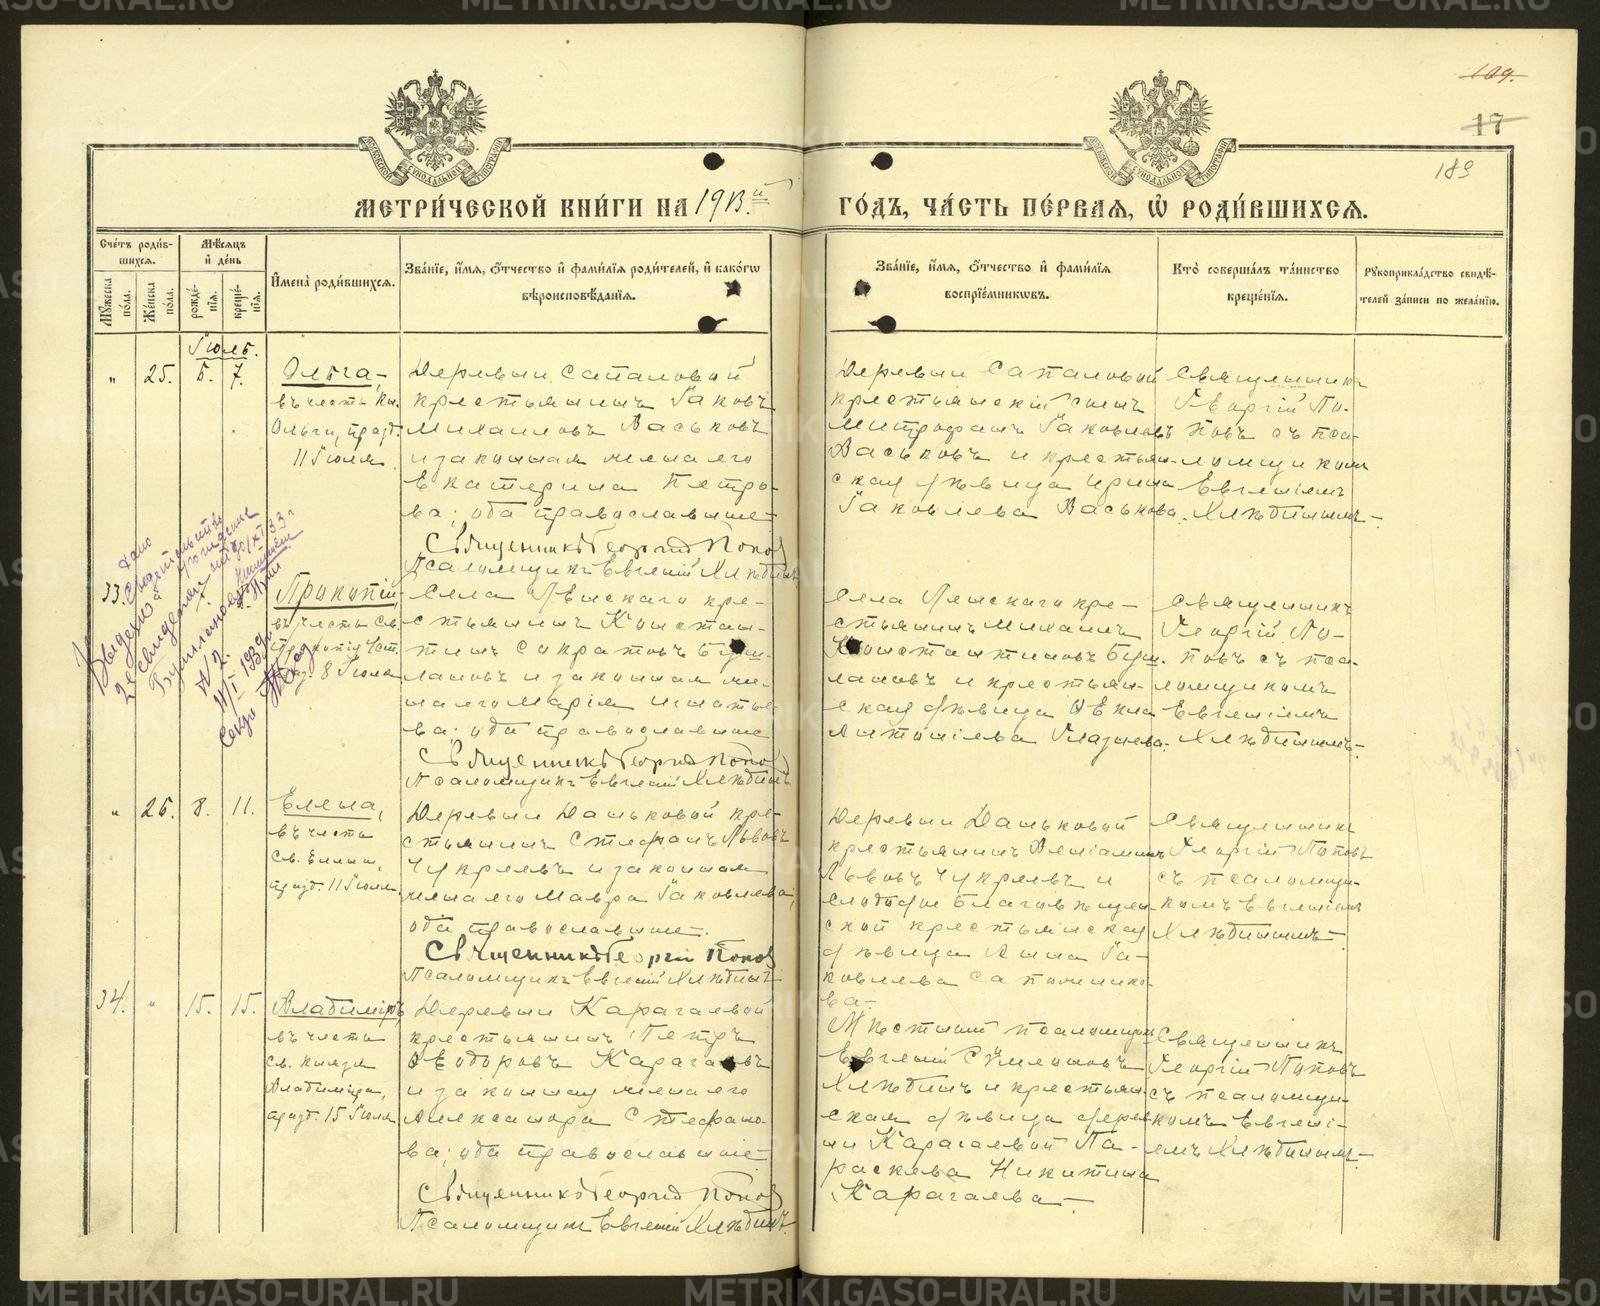 METRIKI.GASO-URAL.RU
109.
17
189
МЕТРИ́ЧЕСКОЙ КНИ́ГИ НА 1913й
ГО́ДЪ, ЧА́СТЬ ПЕ́РВАЯ, Ѡ҆ РОДИ́ВШИХСЯ.
Сче́тъ роди́в-
шихся.
Мѣ́сяцъ
и҆ де́нь
Му́жеска по́ла.
Же́нска по́ла.
рожде́нїя.
креще́нїя.
И҆мена̀ роди́вшихся.
Зва́нїе, и҆́мя, ѻ҆́тчество и҆ фамі́лїя роди́телей, и҆ како́гѡ
вѣроисповѣ́данїя.
Зва́нїе, и҆́мя, ѻ҆́тчество и҆ фамі́лїя
воспрїе́мниковъ.
Кто̀ соверша́лъ та́инство
креще́нїя.
Рꙋкоприкла́дство свидѣ́-
телей за́писи по жела́нїю.
Іюль.
" 25. 5. 7.
Ольга,
въ честь кн.
Ольги, празд.
11 Іюля.
Деревни Сапаловой
крестьянинъ Іаковъ
Михаиловъ Васьковъ
и законная жена его
Екатерина Петро-
ва; оба православные
Священникъ Георгій Поповъ
Псаломщикъ Евгеній Хлѣбинъ
Деревни Сапаловой
крестьянскій сынъ
Митрофанъ Іаковлевъ
Васьковъ и крестьян-
ская дѣвица Ирина
Іаковлева Васькова.
Священникъ
Георгій По-
повъ съ пса-
ломщикомъ
Евгеніемъ
Хлѣбинымъ.
33.
Прокопій,
въ честь св.
Прокопія
8 Іюля
Села
кре-
стьянинъ Констан-
тинъ Сократовъ
и законная же-
на его Марія Игнатье-
ва; оба православные
Священникъ Георгій Поповъ
Псаломщикъ Евгеній Хлѣбинъ
Села
кре-
стьянинъ Михаилъ
Константиновъ
и крестьян-
ская дѣвица Ѳекла
Антоніева Глазырева.
Священникъ
Георгій По-
повъ съ пса-
ломщикомъ
Евгеніемъ
Хлѣбинымъ.
" 26. 8. 11.
Елена,
въ честь
св. Елены,
празд. 11 Іюля
Деревни Даньковой кре-
стьянинъ Стефанъ Львовъ
Чукреевъ и законная
жена его Мавра Іаковлева;
оба православные.
Священникъ Георгій Поповъ
Псаломщикъ Евгеній Хлѣбинъ
Деревни Даньковой
крестьянинъ Веніаминъ
Львовъ Чукреевъ и
слободы Благовѣщен-
ской крестьянская
дѣвица Анна Іа-
ковлева Сапожнико-
ва.
Священникъ
Георгій Поповъ
съ псаломщи-
комъ Евгеніемъ
Хлѣбинымъ.
34. " 15. 15.
Владиміръ,
въ честь
св. князя
Владиміра,
празд. 15 Іюля
Деревни Карагаевой
крестьянинъ Петръ
Ѳеодоровъ Карагаевъ
и законная жена его
Александра Стефано-
ва; оба православные
Священникъ Георгій Поповъ
Псаломщикъ Евгеній Хлѣбинъ.
Мѣстный псаломщикъ
Евгеній Сѵмеоновъ
Хлѣбинъ и крестьян-
ская дѣвица дерев-
ни Карагаевой Па-
раскева Никитина
Карагаева.
Священникъ
Георгій Поповъ
съ псаломщи-
комъ Евгені-
емъ Хлѣбинымъ.